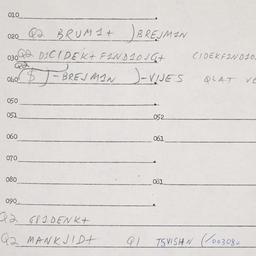 010
020 Q2 BRUM1+ )BREJM1N
030 Q2 D1CIDEK+ F1ND1OJG+ (1DEKF1ND1O
Q2
040 ($)-BREJM1N )-V1JES QLAT
050
051 052
060 061
070
080 081
090
Q2 G81DENK+
Q2 MANKJ1D+ Q1 TSVISHN (/00308